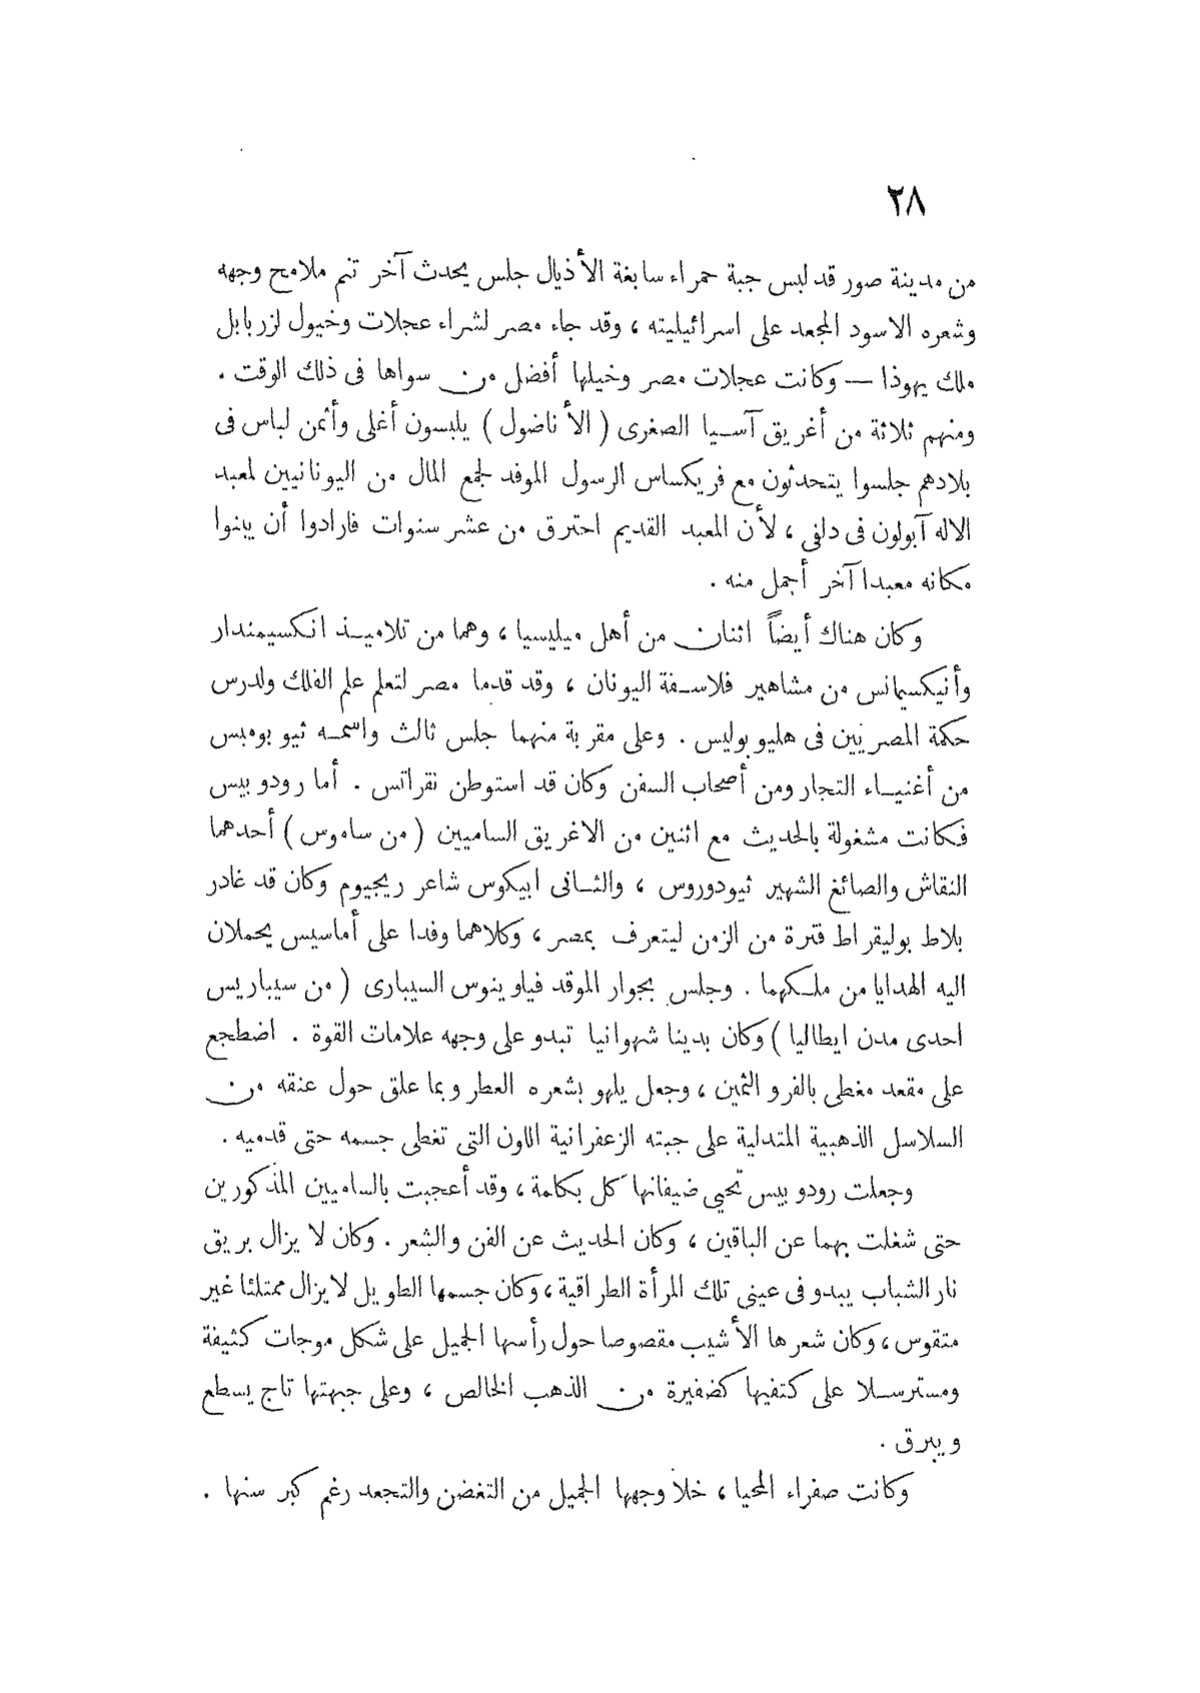 ٢٨
من مدينة صور قد لبس جبة حمراء سابغة الأذيال جلس يحدث آخر تنم ملامح وجهه
وشعره الاسود المجعد على اسرائيليته ، وقد جاء مصر لشراء عجلات وخيول لزربابل
ملك يهوذا — وكانت عجلات مصر وخيلها أفضل من سواها فى ذلك الوقت .
ومنهم ثلاثة من أغريق آسيا الصغرى ( الأناضول ) يلبسون أغلى وأثمن لباس فى
بلادهم جلسوا يتحدثون مع فريكساس الرسول الموفد لجمع المال من اليونانيين لمعبد
الاله آبولون فى دلفى ، لأن المعبد القديم احترق من عشر سنوات فارادوا أن يبنوا
مكانه معبدا آخر أجمل منه .
وكان هناك أيضاً اثنان من أهل ميليسيا ، وهما من تلاميذ انكسيمندار
وأنيكسيمانس من مشاهير فلاسفة اليونان ، وقد قدما مصر لتعلم علم الفلك ولدرس
حكمة المصريين فى هليوبوليس . وعلى مقربة منهما جلس ثالث واسمه ثيوبومبس
من أغنياء التجار ومن أصحاب السفن وكان قد استوطن نقراتس . أما رودوبيس
فكانت مشغولة بالحديث مع اثنين من الاغريق الساميين ( من ساموس ) أحدهما
النقاش والصائغ الشهير ثيودوروس ، والثانى ابيكوس شاعر ريجيوم وكان قد غادر
بلاط بوليقراط فترة من الزمن ليتعرف بمصر ، وكلاهما وفدا على أماسيس يحملان
اليه الهدايا من ملكهما . وجلس بجوار الموقد فيلوينوس السيبارى ( من سيباريس
احدى مدن ايطاليا ) وكان بدينا شهوانيا تبدو على وجهه علامات القوة . اضطجع
على مقعد مغطى بالفرو الثمين ، وجعل يلهو بشعره العطر وبما علق حول عنقه من
السلاسل الذهبية المتدلية على جبته الزعفرانية اللون التى تغطى جسمه حتى قدميه .
وجعلت رودوبيس تحيى ضيفانها كل بكلمة ، وقد أعجبت بالساميين المذكورين
حتى شغلت بهما عن الباقين ، وكان الحديث عن الفن والشعر . وكان لا يزال بريق
نار الشباب يبدو فى عينى تلك المرأة الطراقية ، وكان جسمها الطويل لا يزال ممتلئا غير
متقوس ، وكان شعرها الأشيب مقصوصا حول رأسها الجميل على شكل موجات كثيفة
ومسترسلا على كتفيها كضفيرة من الذهب الخالص ، وعلى جبهتها تاج يسطع
ويبرق .
وكانت صفراء المحيا ، خلا وجهها الجميل من التغضن والتجعد رغم كبر سنها .